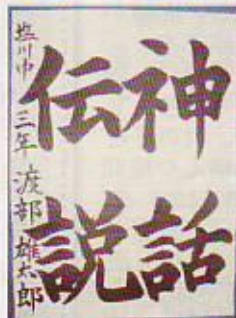 神話
伝説
塩川中 三年 渡部 雄太郎